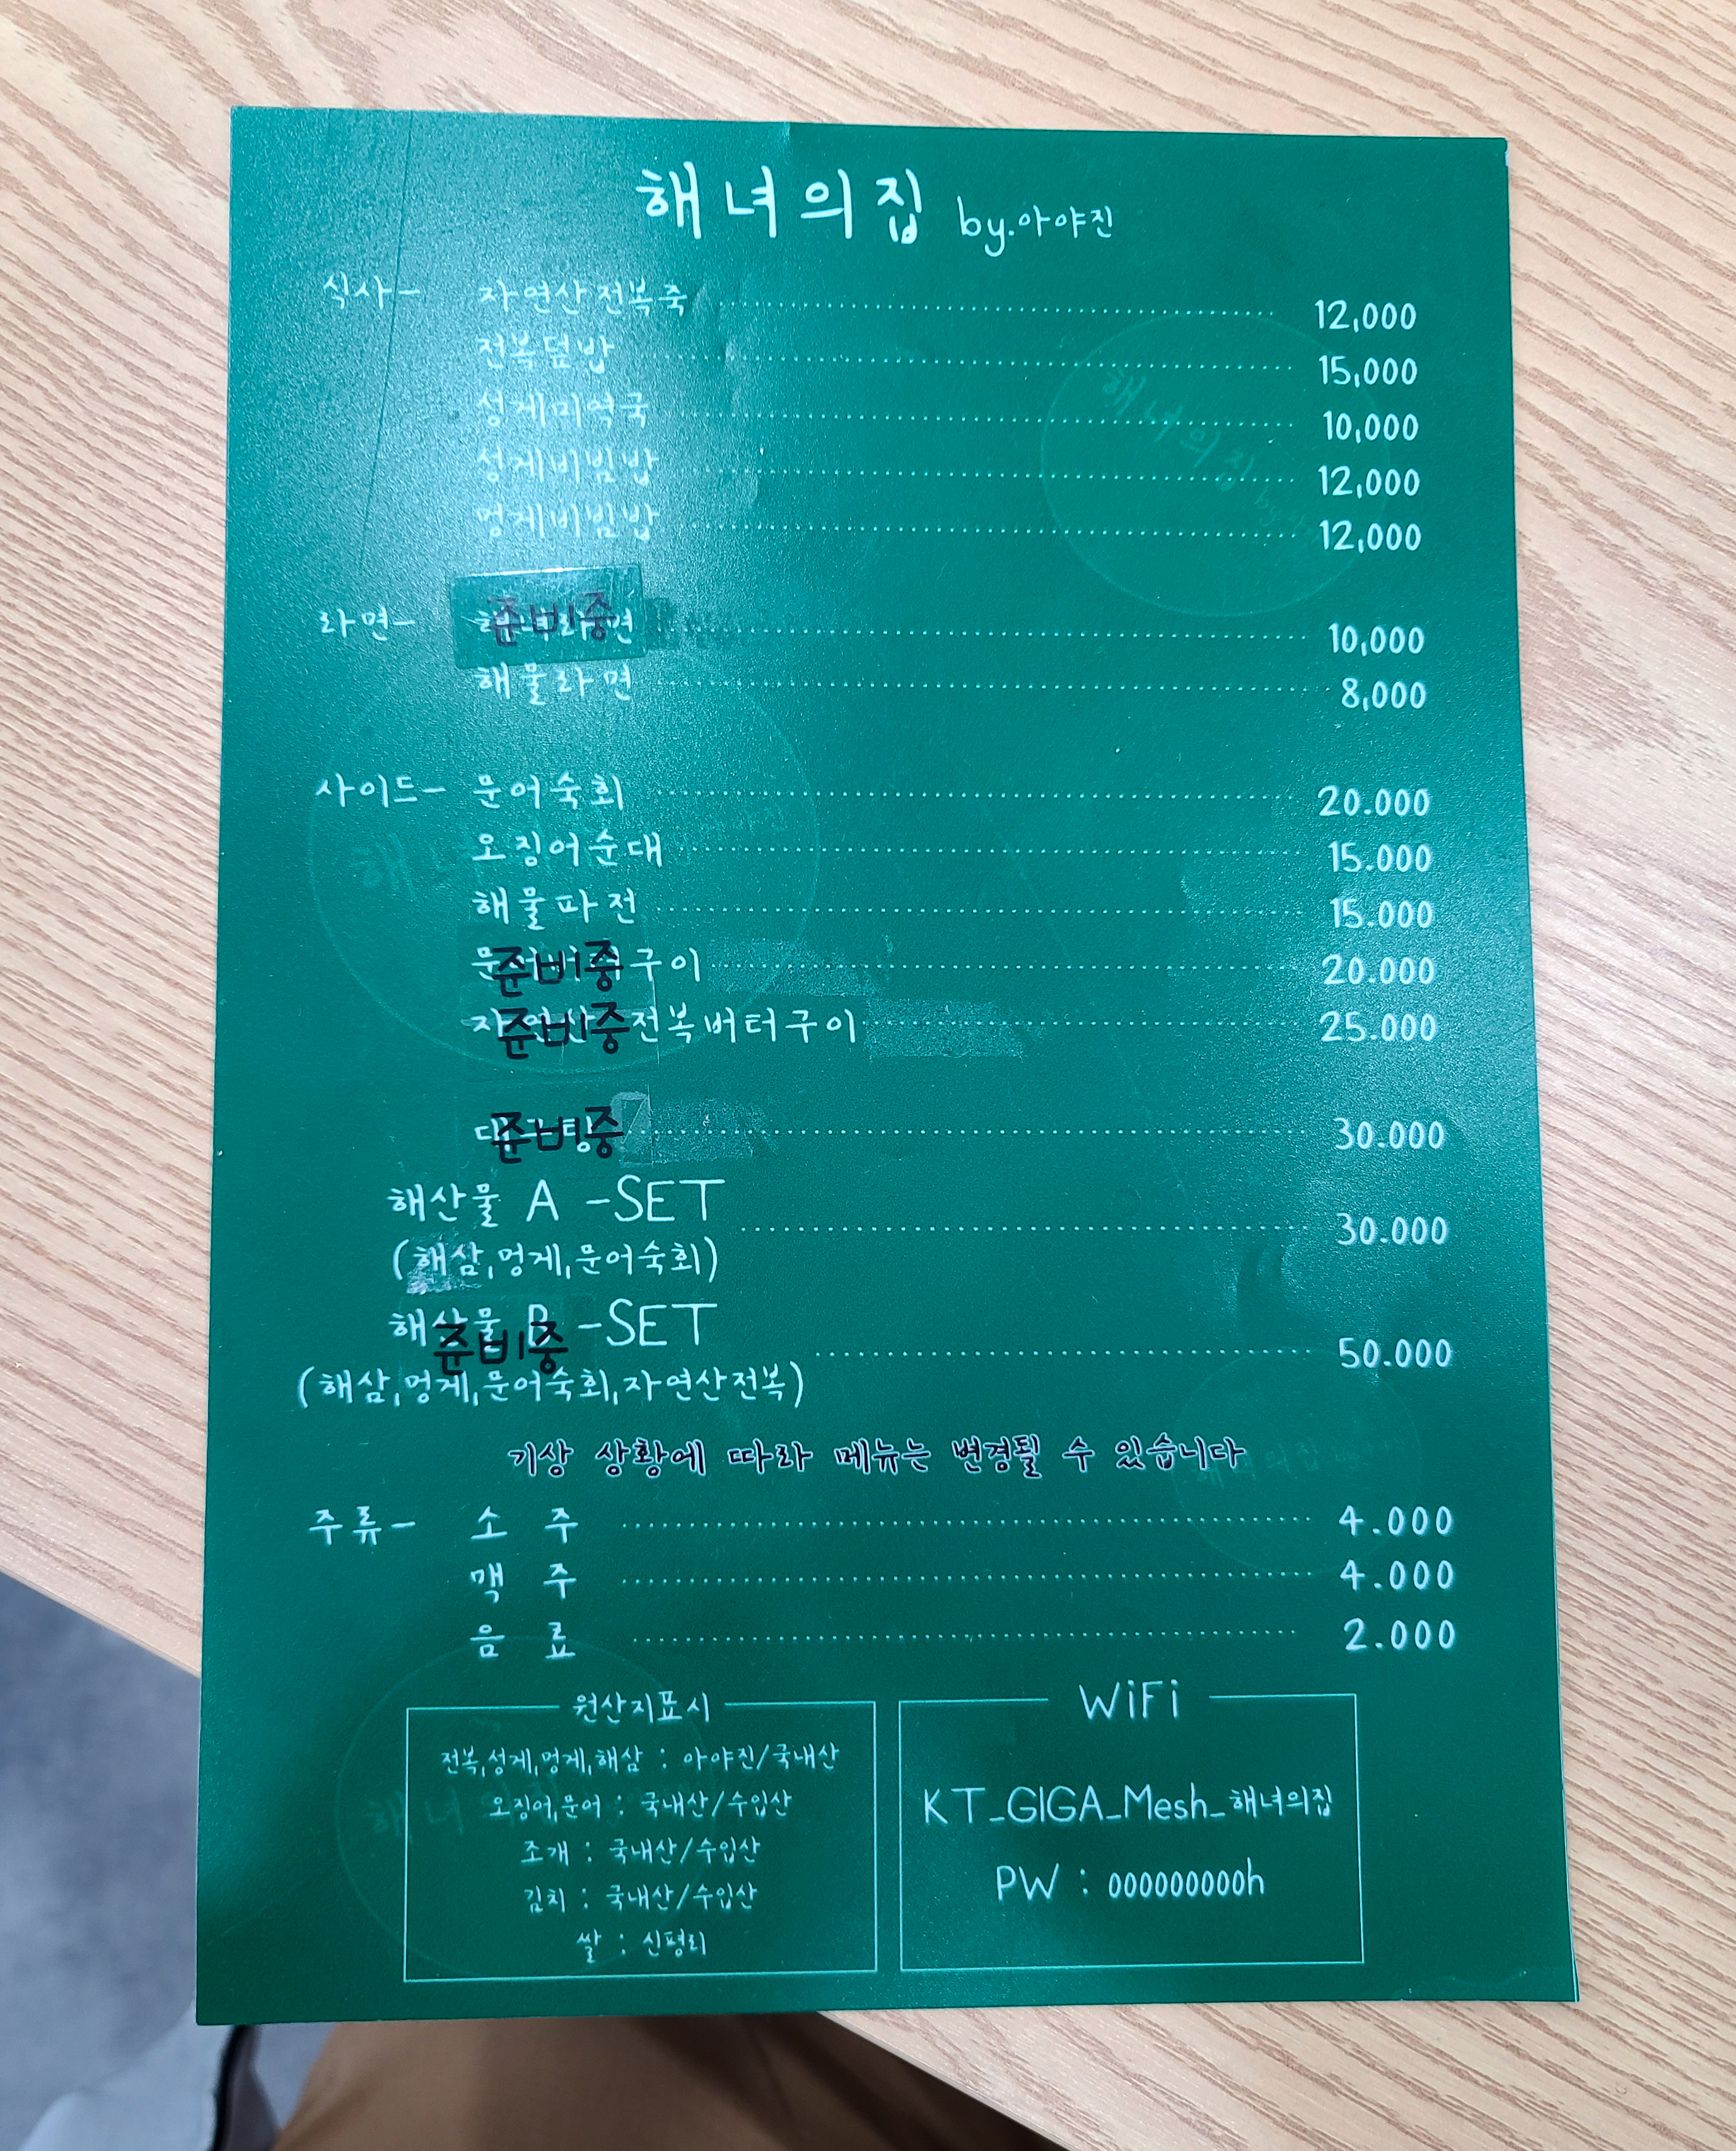 해녀의집 by.아야진
식사- 자연산전복죽 12,000
전복덮밥 15,000
성게미역국 10,000
성게비빔밥 12,000
멍게비빔밥 12,000
라면- 준비중 10,000
해물라면 8,000
사이드- 문어숙회 20.000
오징어순대 15.000
해물파전 15.000
준비중 구이 20.000
준비중 전복버터구이 25.000
준비중 30.000
해산물 A -SET 30.000
(해삼,멍게,문어숙회)
해산물 B -SET 50.000
준비중
(해삼,멍게,문어숙회,자연산전복)
기상 상황에 따라 메뉴는 변경될 수 있습니다
주류- 소 주 4.000
맥 주 4.000
음 료 2.000
원산지표시
전복,성게,멍게,해삼 : 아야진/국내산
오징어,문어 : 국내산/수입산
조개 : 국내산/수입산
김치 : 국내산/수입산
쌀 : 신평리
WiFi
KT_GIGA_Mesh_해녀의집
PW : 000000000h